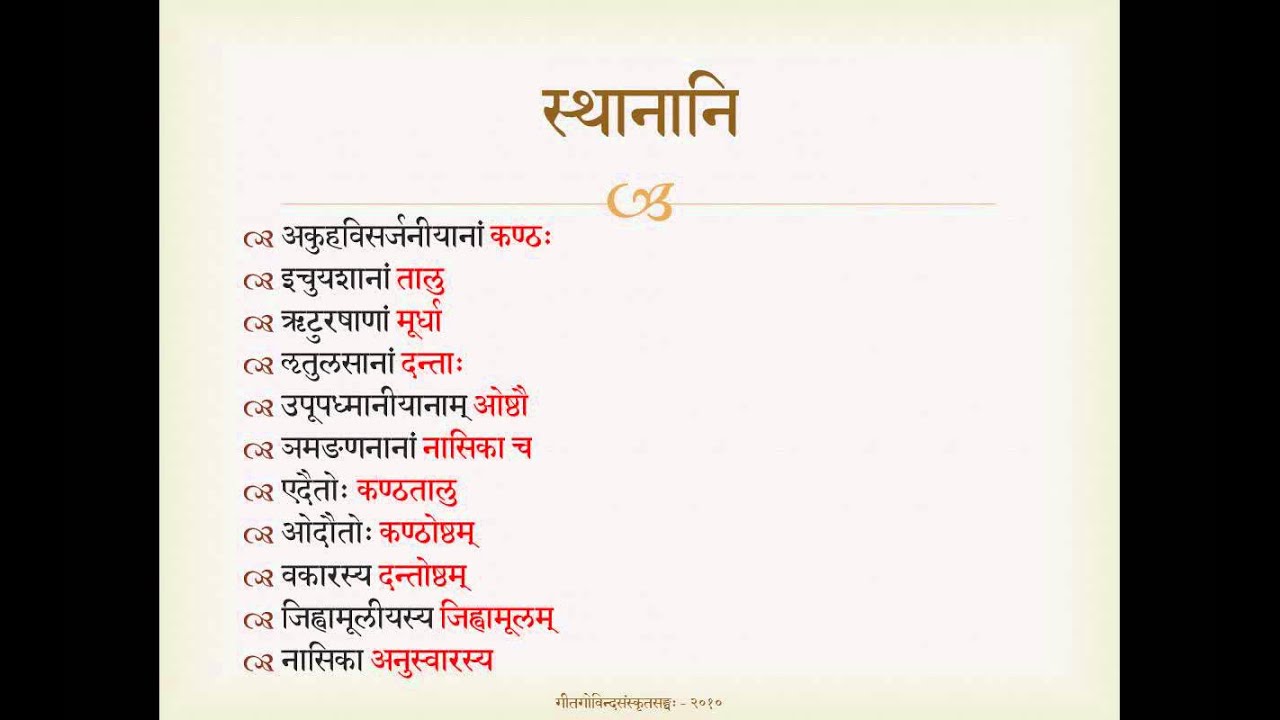 स्थानानि
अकुहविसर्जनीयानां कण्ठः
इचुयशानां तालु
ऋटुरषाणां मूर्धा
ऌतुलसानां दन्ताः
उपूपध्मानीयानाम् ओष्ठौ
ञमङणनानां नासिका च
एदैतोः कण्ठतालु
ओदौतोः कण्ठोष्ठम्
वकारस्य दन्तोष्ठम्
जिह्वामूलीयस्य जिह्वामूलम्
नासिका अनुस्वारस्य
गीतगोविन्दसंस्कृतसङ्घः - २०१०